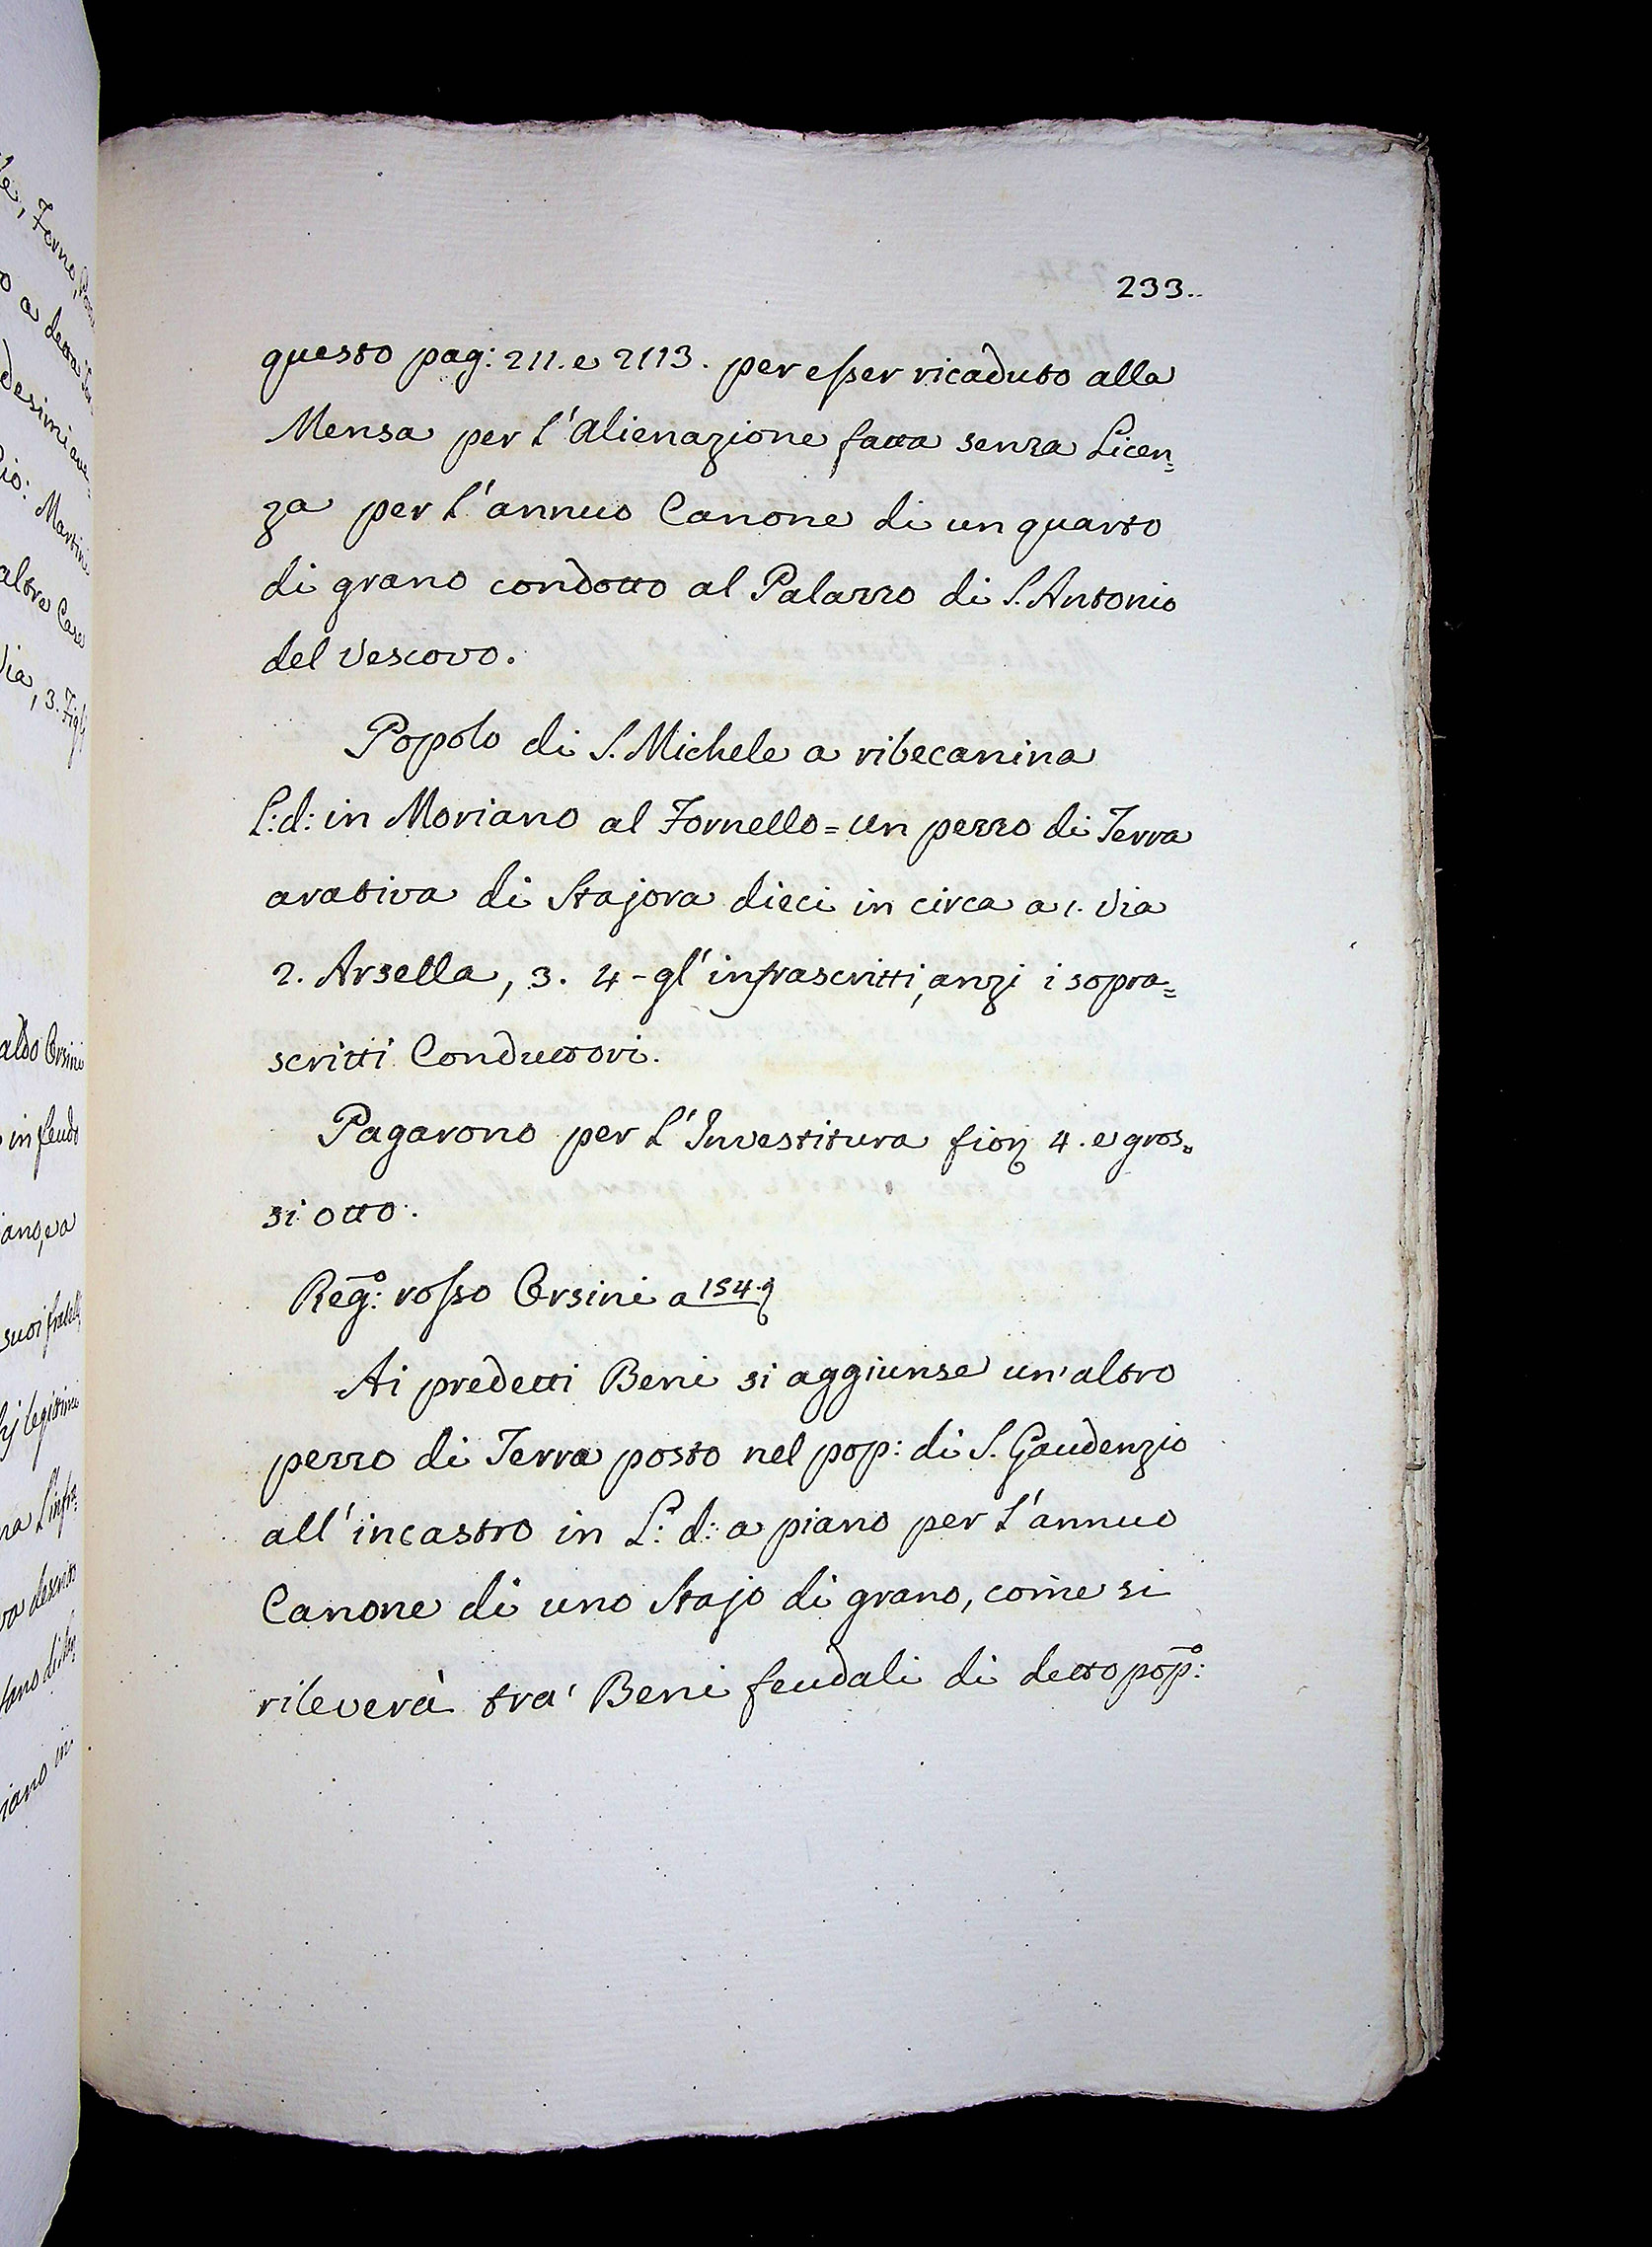 233..
questo pag: 211. e 2113. per esser ricaduto alla
Mensa per l'alienazione fatta senza Licen=
za per l'annuo Canone di un quarto
di grano condotto al Palazzo di S. Antonio
del Vescovo.
Popolo di S. Michele a ribecanina
L: d: in Moriano al Fornello = un pezzo di Terra
arativa di Stajora dieci in circa a 1. Via
2. Arsella, 3. 4 - gl'infrascritti, anzi i sopra=
scritti Conduttori.
Pagarono per l'Investitura fior 4. e gros=
si otto.
Reg:o rosso Orsini a 154.
Ai predetti Beni si aggiunse un'altro
pezzo di Terra posto nel pop: di S. Gaudenzio
all'incastro in L: d: a piano per l'annuo
Canone di uno Stajo di grano, come si
rileverà tra' Beni feudali di detto pop:o